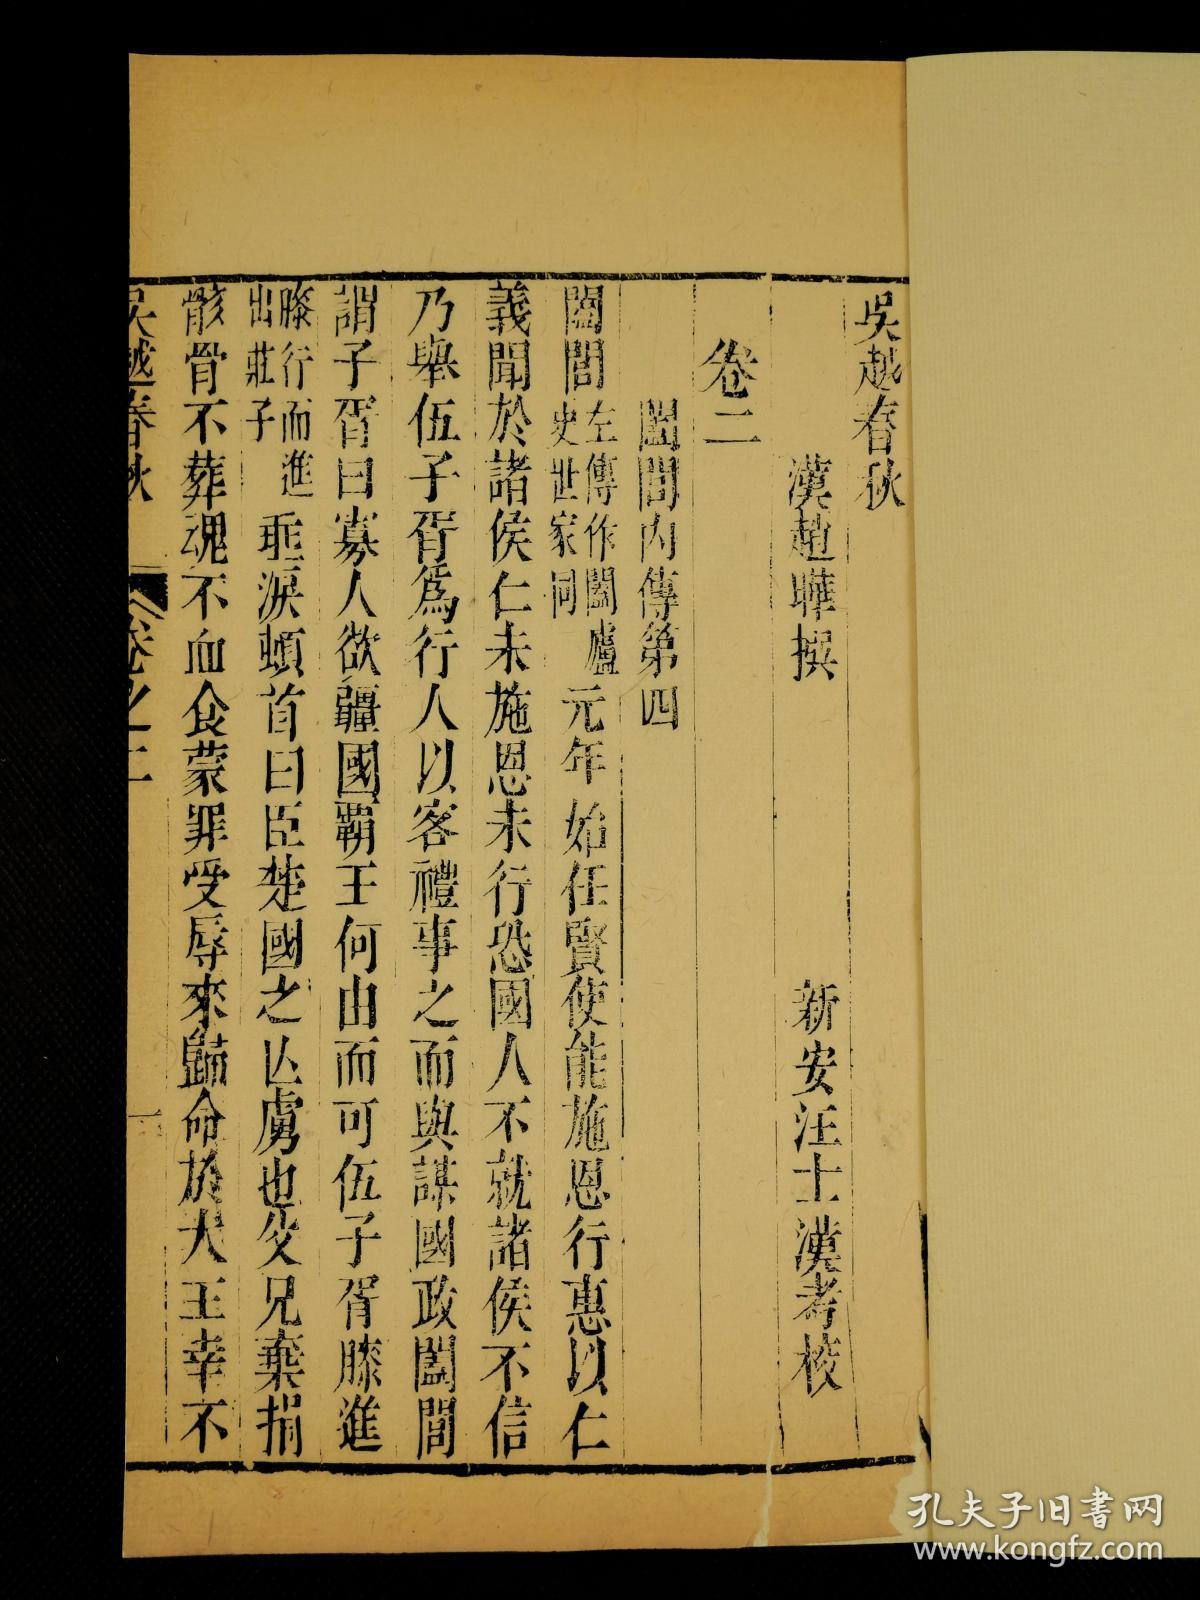 吳越春秋
漢趙曄撰　新安汪士漢考校
卷二
闔閭內傳第四
闔閭左傳作闔廬史世家同元年始任賢使能施恩行惠以仁
義聞於諸侯仁未施恩未行恐國人不就諸侯不信
乃舉伍子胥爲行人以客禮事之而與謀國政闔閭
謂子胥曰寡人欲疆國霸王何由而可伍子胥膝進
膝行而進出莊子垂淚頓首曰臣楚國之亾虜也父兄棄捐
骸骨不葬魂不血食蒙罪受辱來歸命於大王幸不
吳越春秋　卷之二　一
孔夫子旧书网
www.kongfz.com